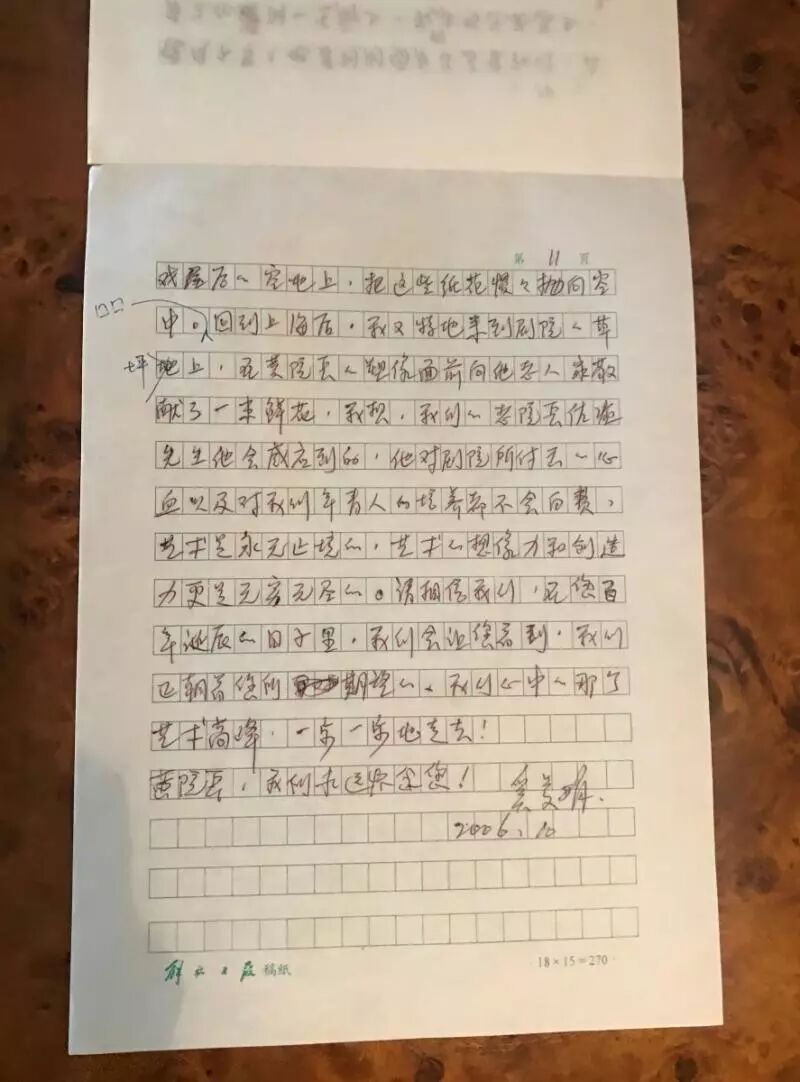 第 11 页
戏屋后的空地上，把这些纸花慢々抛向空
中。回到上海后，我又特地来到剧院的草
坪上，在黄院长的塑像面前向他老人家敬
献了一束鲜花，我想，我们的老院长佐临
先生他会感应到的，他对剧院所付出的心
血以及对我们年青人的培养都不会白费，
艺术是永无止境的，艺术的想像力和创造
力更是无穷无尽的。请相信我们，在您百
年诞辰的日子里，我们会让您看到，我们
正朝着您所期望的、我们心中的那个
艺术高峰，一步一步地走去！
黄院长，我们永远怀念您！
2006、10
解放日报稿纸
18×15=270